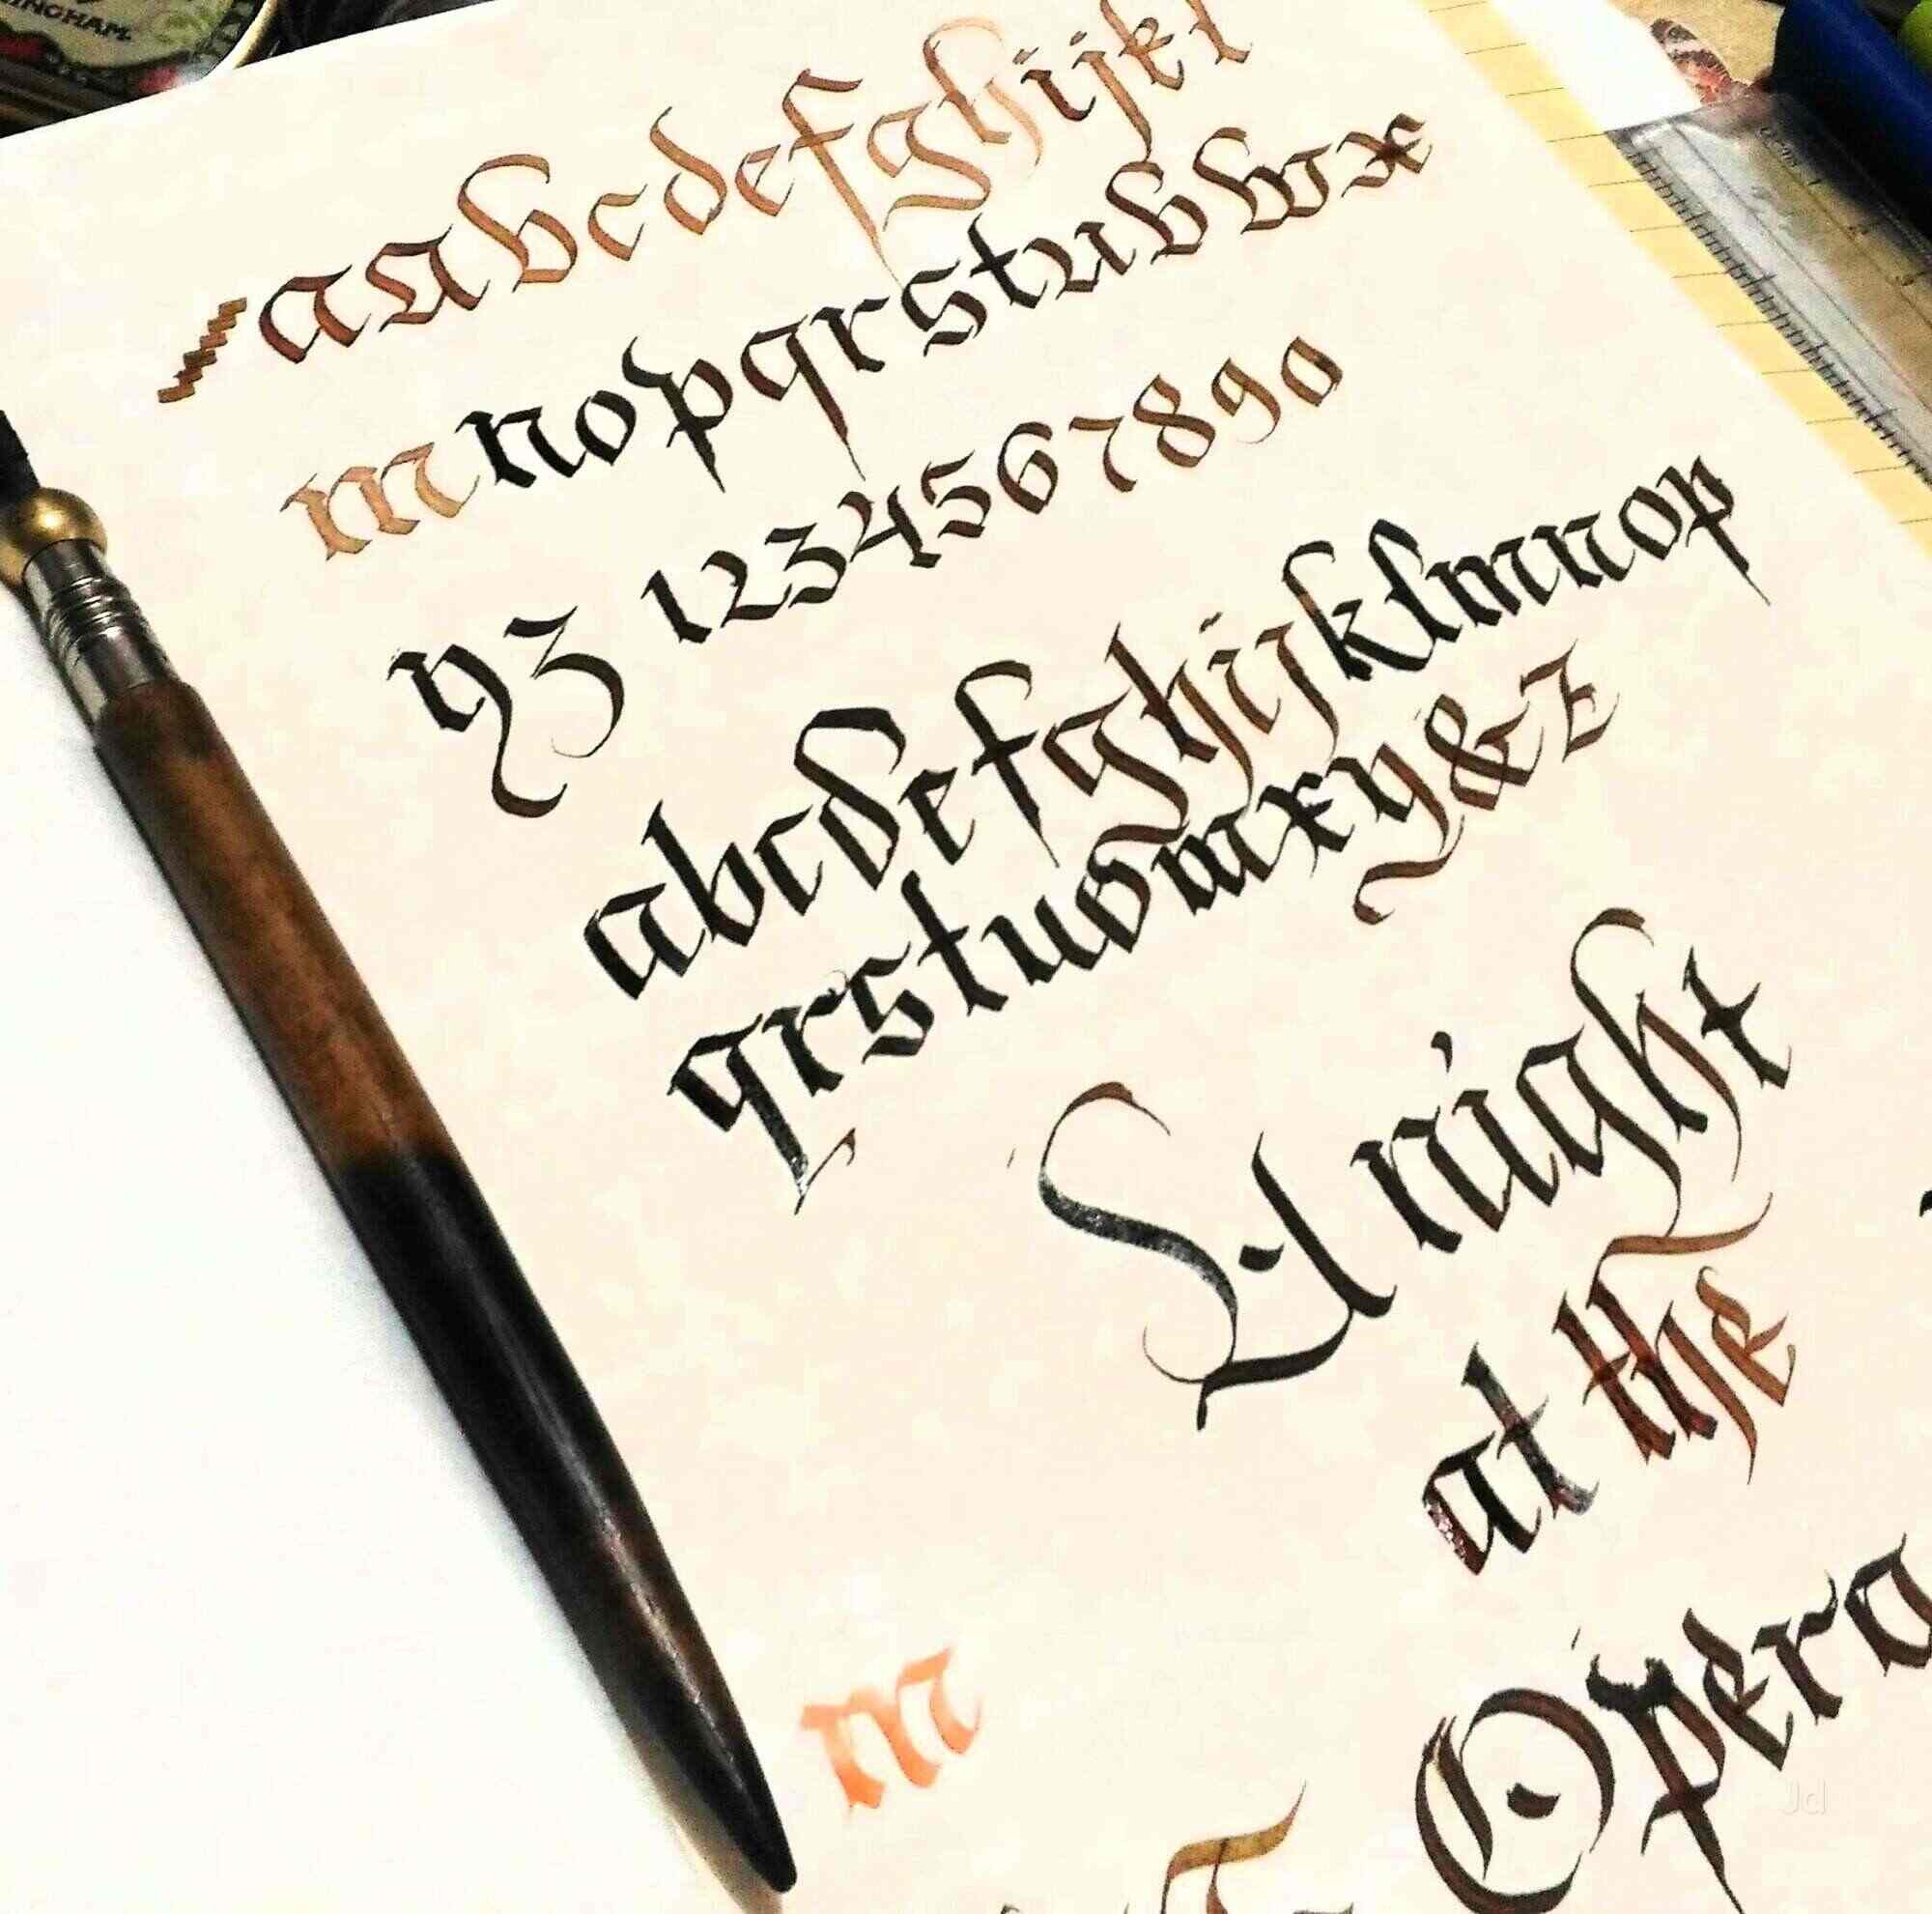 INGHAM
aabcdefghijkl
mnopqrstuvwx
yz 1234567890
abcdefghijklmnop
qrstuvwxy&z
A night
at the
m
Opera
Jd